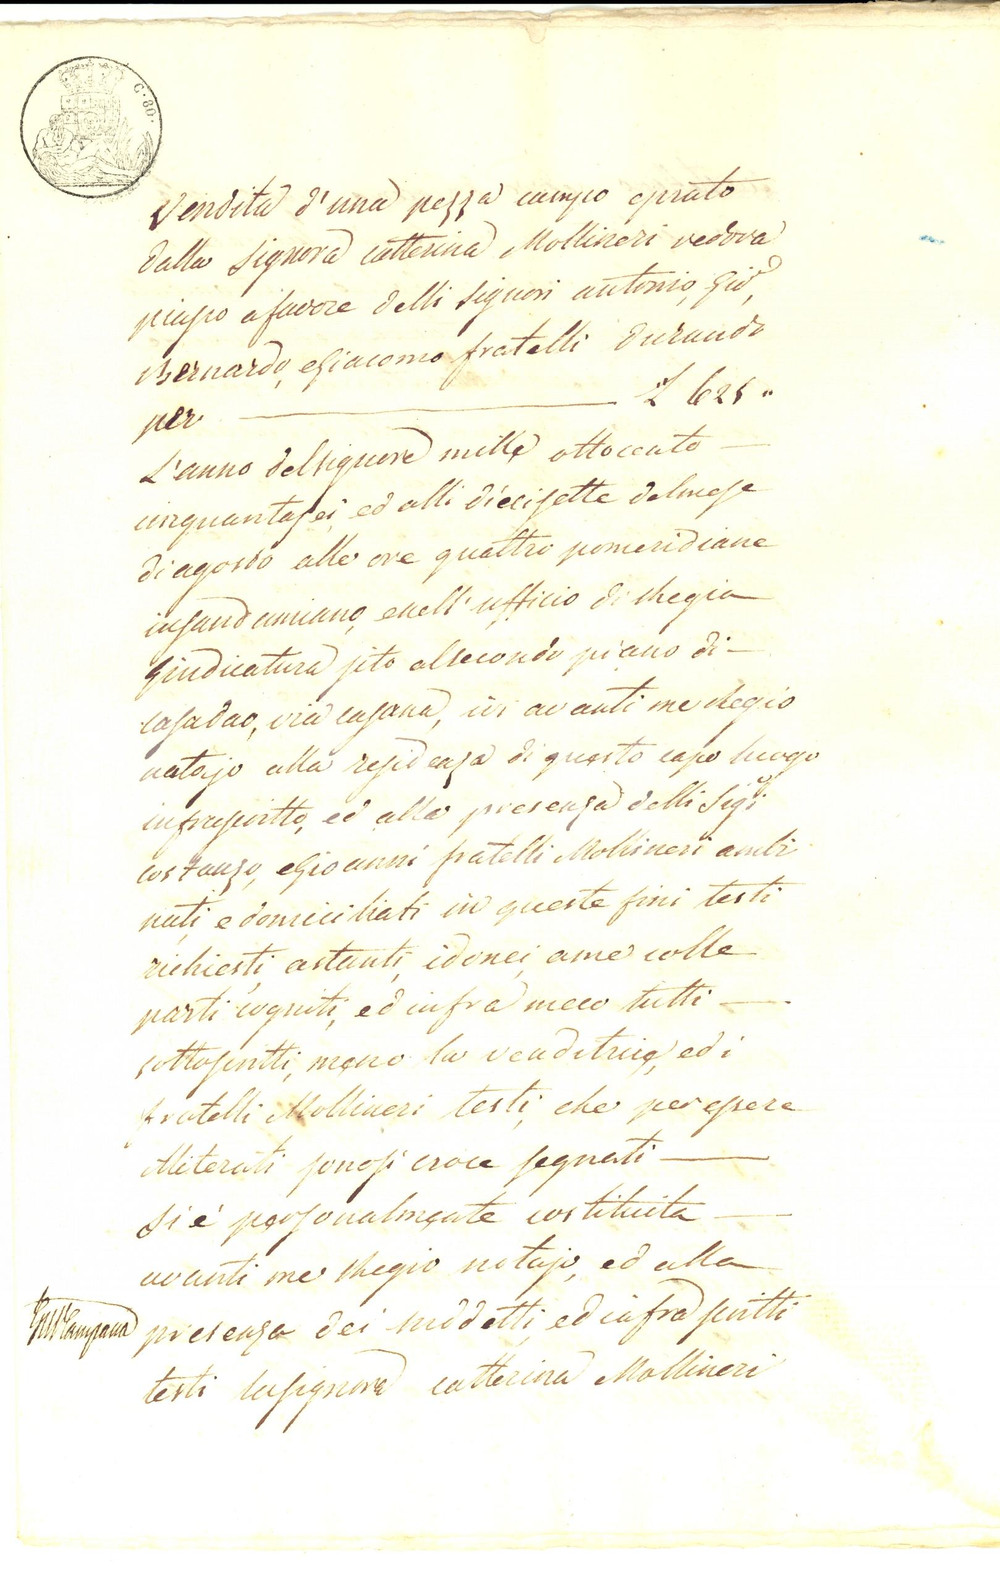 C. 80.
Vendita d'una pezza campo e prato
dalla Signora Catterina Mollineri vedova
a favore delli Signori antonio, Gio',
Bernardo, e Giacomo fratelli Durando
per £ 625 "
L'anno del signore mille ottocento
cinquantasei, ed alli diecisette del mese
di agosto alle ore quattro pomeridiane
in sandamiano, e nell'ufficio di Regia
Giudicatura sito al secondo piano di
casa Dao, via , ivi avanti me Regio
notajo alla residenza di questo capo luogo
infrascritto, ed alla presenza delli Sigi
Costanzo, e Gioanni fratelli Mollineri ambi
nati, e domiciliati in queste fini testi
richiesti, astanti, idonei, a me colle
parti cogniti, ed infra meco tutti
sottoscritti, meno la venditrice, ed i
fratelli Mollineri testi, che per essere
illiterati sonosi croce segnati
Si è personalmente costituita
avanti me Regio notajo, ed alla
presenza dei suddetti, ed infrascritti
testi la signora Catterina Mollineri
Campana